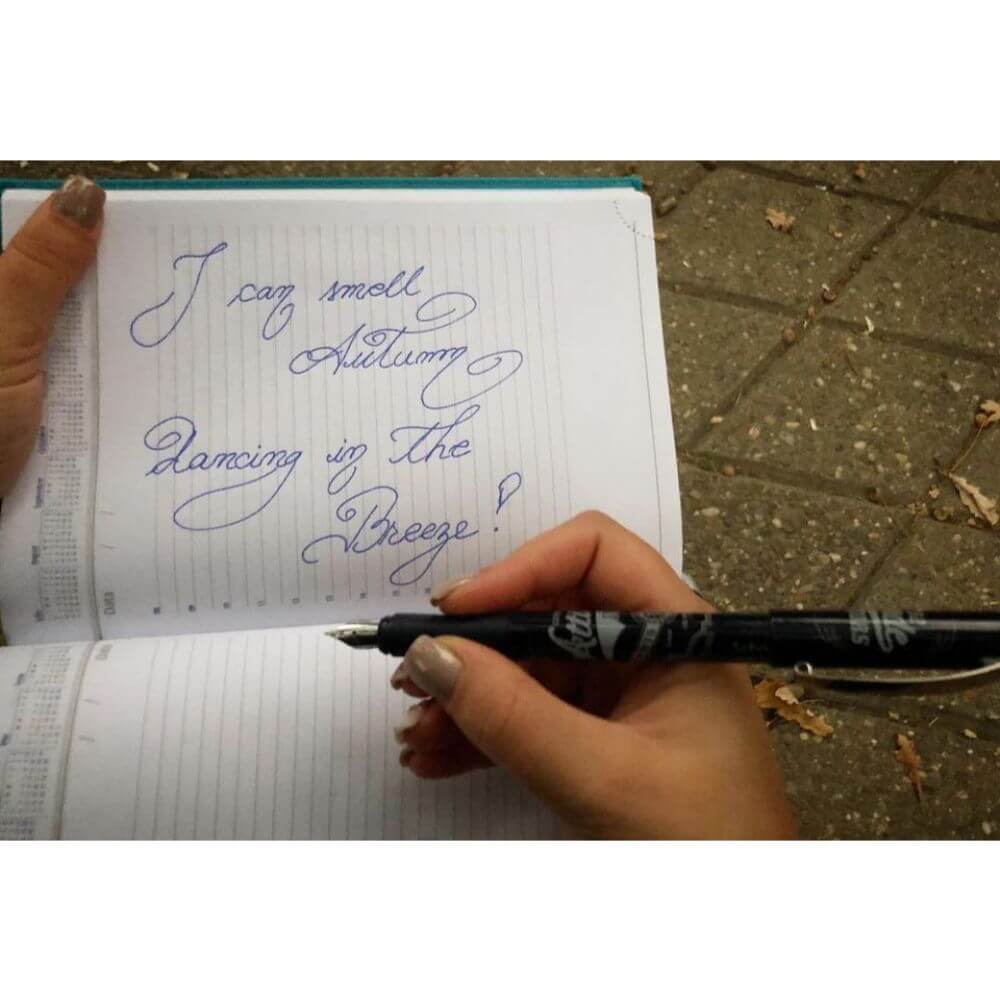 I can smell
Autumn
Dancing in the
Breeze!